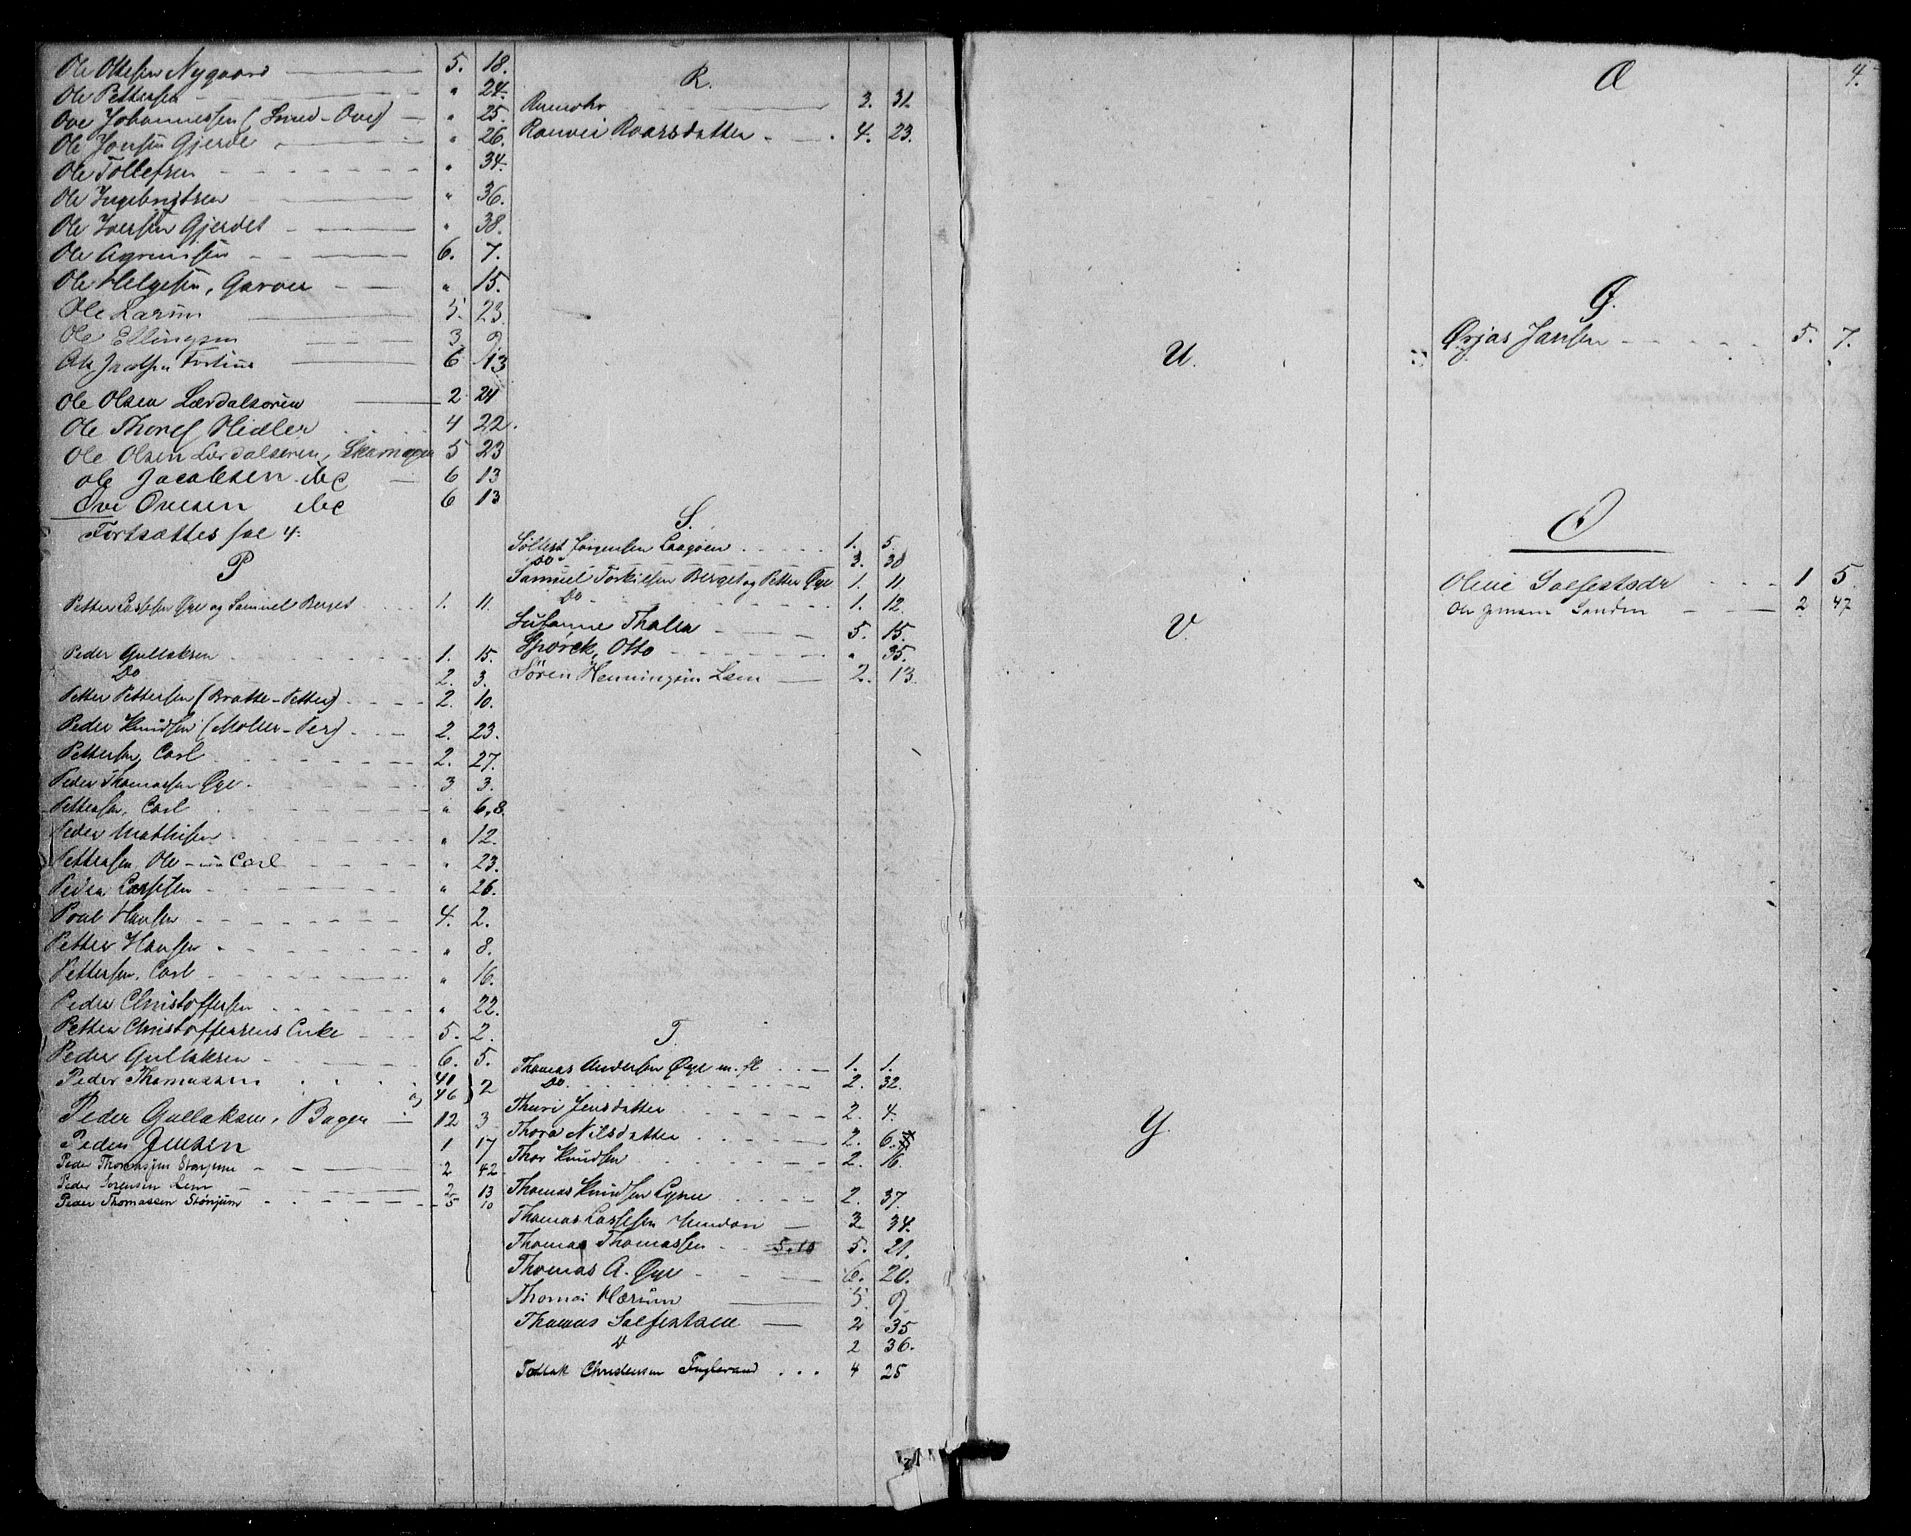 Ole Ottesen Nygaard 5. 18.
Ole Pettersen " 24.
Ove Johannessen (Smed-Ove) " 25.
Ole Jonsen Gjerde " 26.
Ole Tollefsen " 34.
Ole Ingebrigtsen " 36.
Ole Iversen Gjerdet " 38.
Ole 6. 7.
Ole Helgesen, Garver " 15.
Ole Larsen 5. 23.
Ole Ellingsen 3 9
Ole Jacobsen 6 13
Ole Olsen Lærdalsøren 2 24
Ole Thores Hidler 4 22.
Ole Olsen Lærdalsøren, 5 23
Ole Jacobsen ibc 6 13
Ove Ovesen ibc 6 13
Fortsættes fol 4:
P
Petter Lassesen Øye og Samuel Berget 1. 11.
Peder Gullaksen 1. 15.
Do 2. 3.
Petter Pettersen (Bratte-Petter) 2. 10.
Peder Knudsen (Møller-Per) 2. 23.
Pettersen, Carl 2. 27.
Peder Thomassen Øye 3 3.
Pettersen, Carl " 6,8.
Peder Mathisen " 12.
Pettersen, Ole Carl " 23.
Peder Lassesen " 26.
Poul Hansen 4. 2.
Petter Hansen " 8.
Pettersen, Carl " 16.
Peder Christoffersen " 22.
Petter Christoffersens Enke 5. 2.
Peder Gullaksen 6. 5.
Peder Thomassen 40 og 46 } 2
Peder Gullaksen, Bager 12 3
Peder Jensen 1 17
Peder Thomassen Stønjum 2 42
Peder Sørensen Lem 2 13
Peder Thomassen Stønjum 5 10
R.
Ramohr 3. 31.
Ranvei Roarsdatter 4. 23.
S.
Sölfest Jørgensen Laagøen 1. 5.
Do 3. 38
Samuel Torkilsen Berget og Petter Øye 1. 11
Do 1. 12.
Susanne Thalia 5. 15.
Spørck, Otto " 35.
Sören Henningsen Lem 2. 13.
T.
Thomas Andersen Øye m. fl 1. 1.
Do 2. 32.
Thuri Jensdatter 2. 4.
Thora Nilsdatter 2. 6.
Thor Knudsen 2. 16.
Thomas Knudsen Lysne 2. 37.
Thomas Lassesen 3 34.
Thomas Thomassen 5.10 5. 21.
Thomas A. Øye 6. 20.
Thomas Hærum 5. 9.
Thomas Solfestsen 2 35
D 2 36.
Tollak Christensen Fuglesand 4 25
U.
V.
Y.
4.
Æ
Ø.
Ørjas Jansen 5. 7.
O
Oline Solfestsdr 1 5.
Ole Sanden 2 47